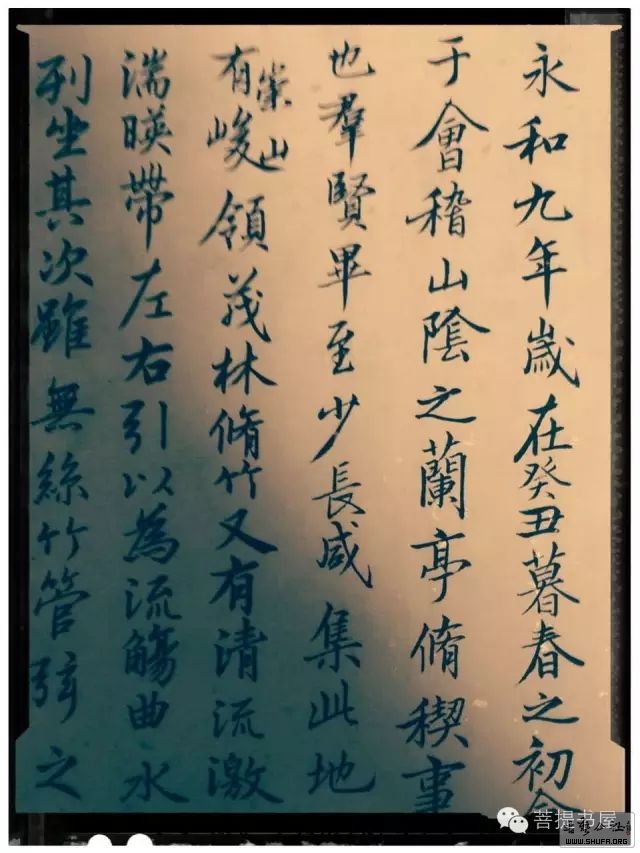 永和九年歲在癸丑暮春之初會
于會稽山陰之蘭亭脩稧事
也羣賢畢至少長咸集此地
有崇山峻領茂林脩竹又有清流激
湍暎帶左右引以為流觴曲水
列坐其次雖無絲竹管弦之
菩提书屋
WWW.SHUFA.ORG